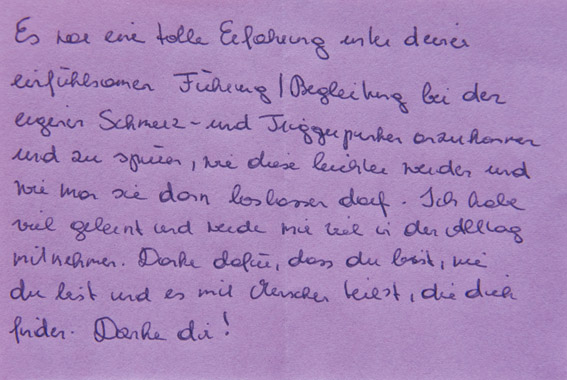 Es war eine tolle Erfahrung unter deiner
einfühlsamen Führung / Begleitung bei den
eigenen Schmerz- und Triggerpunkten anzukommen
und zu spüren, wie diese leichter werden und
wie man sie dann loslassen darf. Ich habe
viel gelernt und werde mir viel in den Alltag
mitnehmen. Danke dafür, dass du bist, wie
du bist und es mit Menschen teilst, die dich
finden. Danke dir!